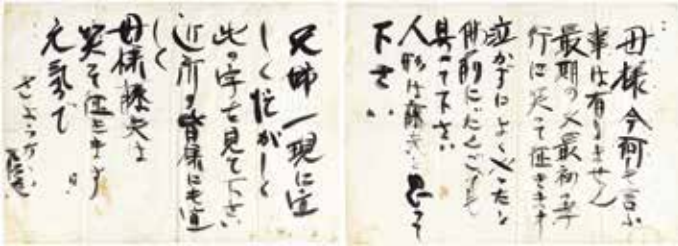 母様今何も言ふ
事は有りません
最期の又最初の孝
行に笑って征きます
泣かずによくやったと
仏前にだんごでも
具へて下さい
人形は藤夫と思って
下さい
兄姉一現に宜
しく忙がしく
此の字を見て下さい
近所の皆様にも宜
しく
母様藤夫は
笑って征きます
元気で
さようなら